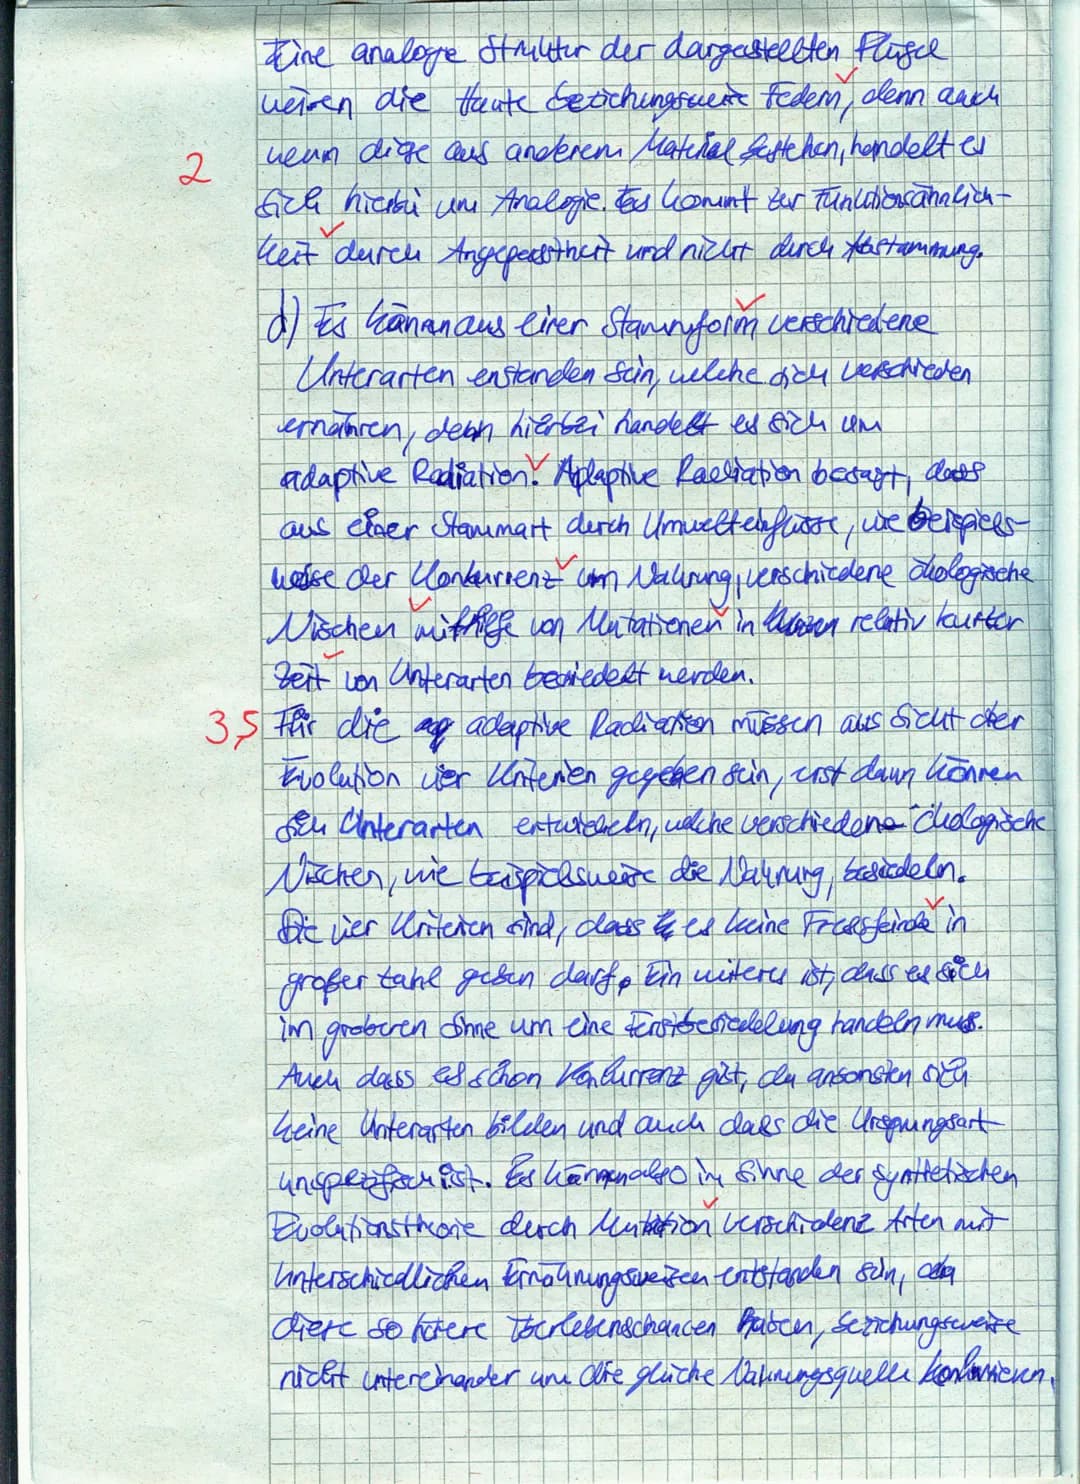 Eine analoge Struktur der dargestellten Flügel
weisen die Häute beziehungsweise Federn, denn auch
2 wenn diese aus anderem Material bestehen, handelt es
sich hierbei um Analogie. Es kommt zur Funktionsähnlich-
keit durch Angepasstheit und nicht durch Abstammung.
d) Es können aus einer Stammform verschiedene
Unterarten enstanden sein, welche sich verschieden
ernähren, denn hierbei handelt es sich um
adaptive Radiation. Adaptive Radiation besagt, dass
aus einer Stammart durch Umwelteinflüsse, wie beispiels-
weise der Konkurrenz um Nahrung, verschiedene ökologische
Nischen mithilfe von Mutationen in relativ kurzer
Zeit von Unterarten besiedelt werden.
3,5 Für die adaptive Radiation müssen aus Sicht der
Evolution vier Kriterien gegeben sein, erst dann können
sich Unterarten entwickeln, welche verschiedene ökologische
Nischen, wie beispielsweise die Nahrung, besiedeln.
Die vier Kriterien sind, dass es keine Fressfeinde in
großer Zahl geben darf. Ein weiteres ist, dass es sich
im groberen Sinne um eine Erstbesiedelung handeln muss.
Auch dass es schon Konkurrenz gibt, da ansonsten sich
keine Unterarten bilden und auch dass die Ursprungsart
unspezifisch ist. Es können also im Sinne der synthetischen
Evolutionstheorie durch Mutation verschiedene Arten mit
unterschiedlichen Ernährungsweisen entstanden sein, da
diese so Überlebenschancen haben, beziehungsweise
nicht untereinander um die gleiche Nahrungsquelle konkurrieren.